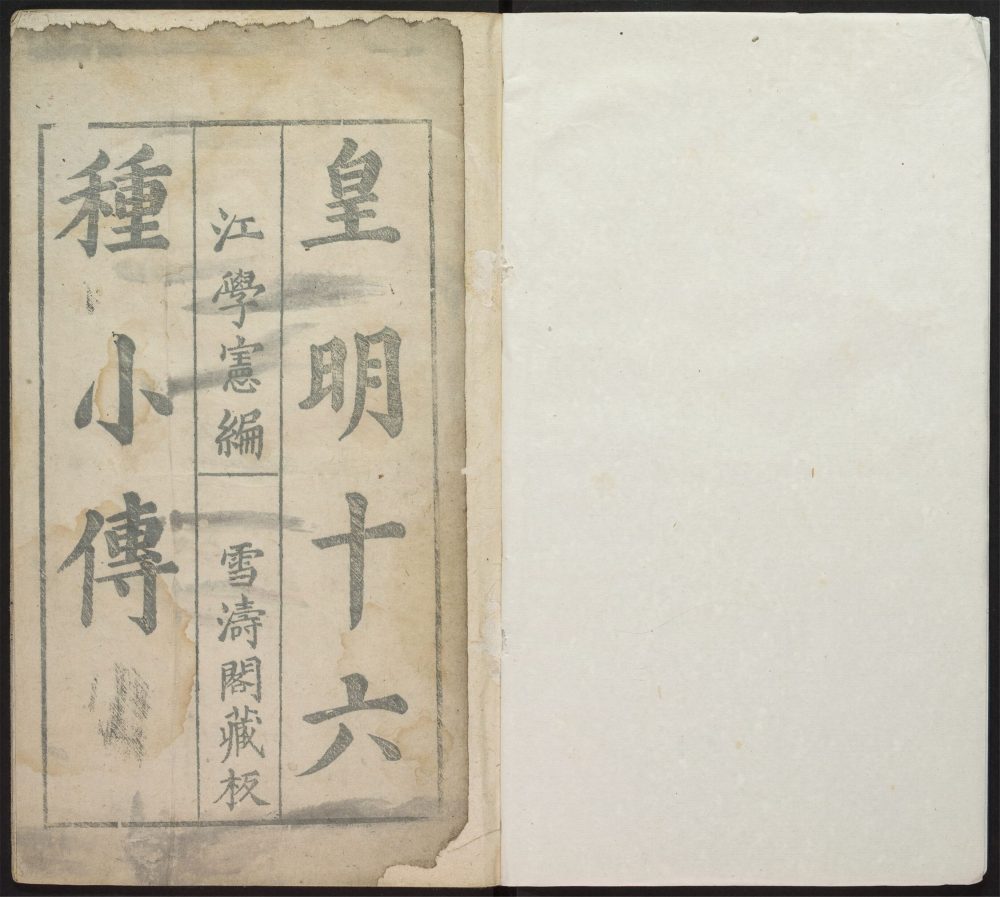 皇明十六
江學憲編
雪濤閣藏板
種小傳